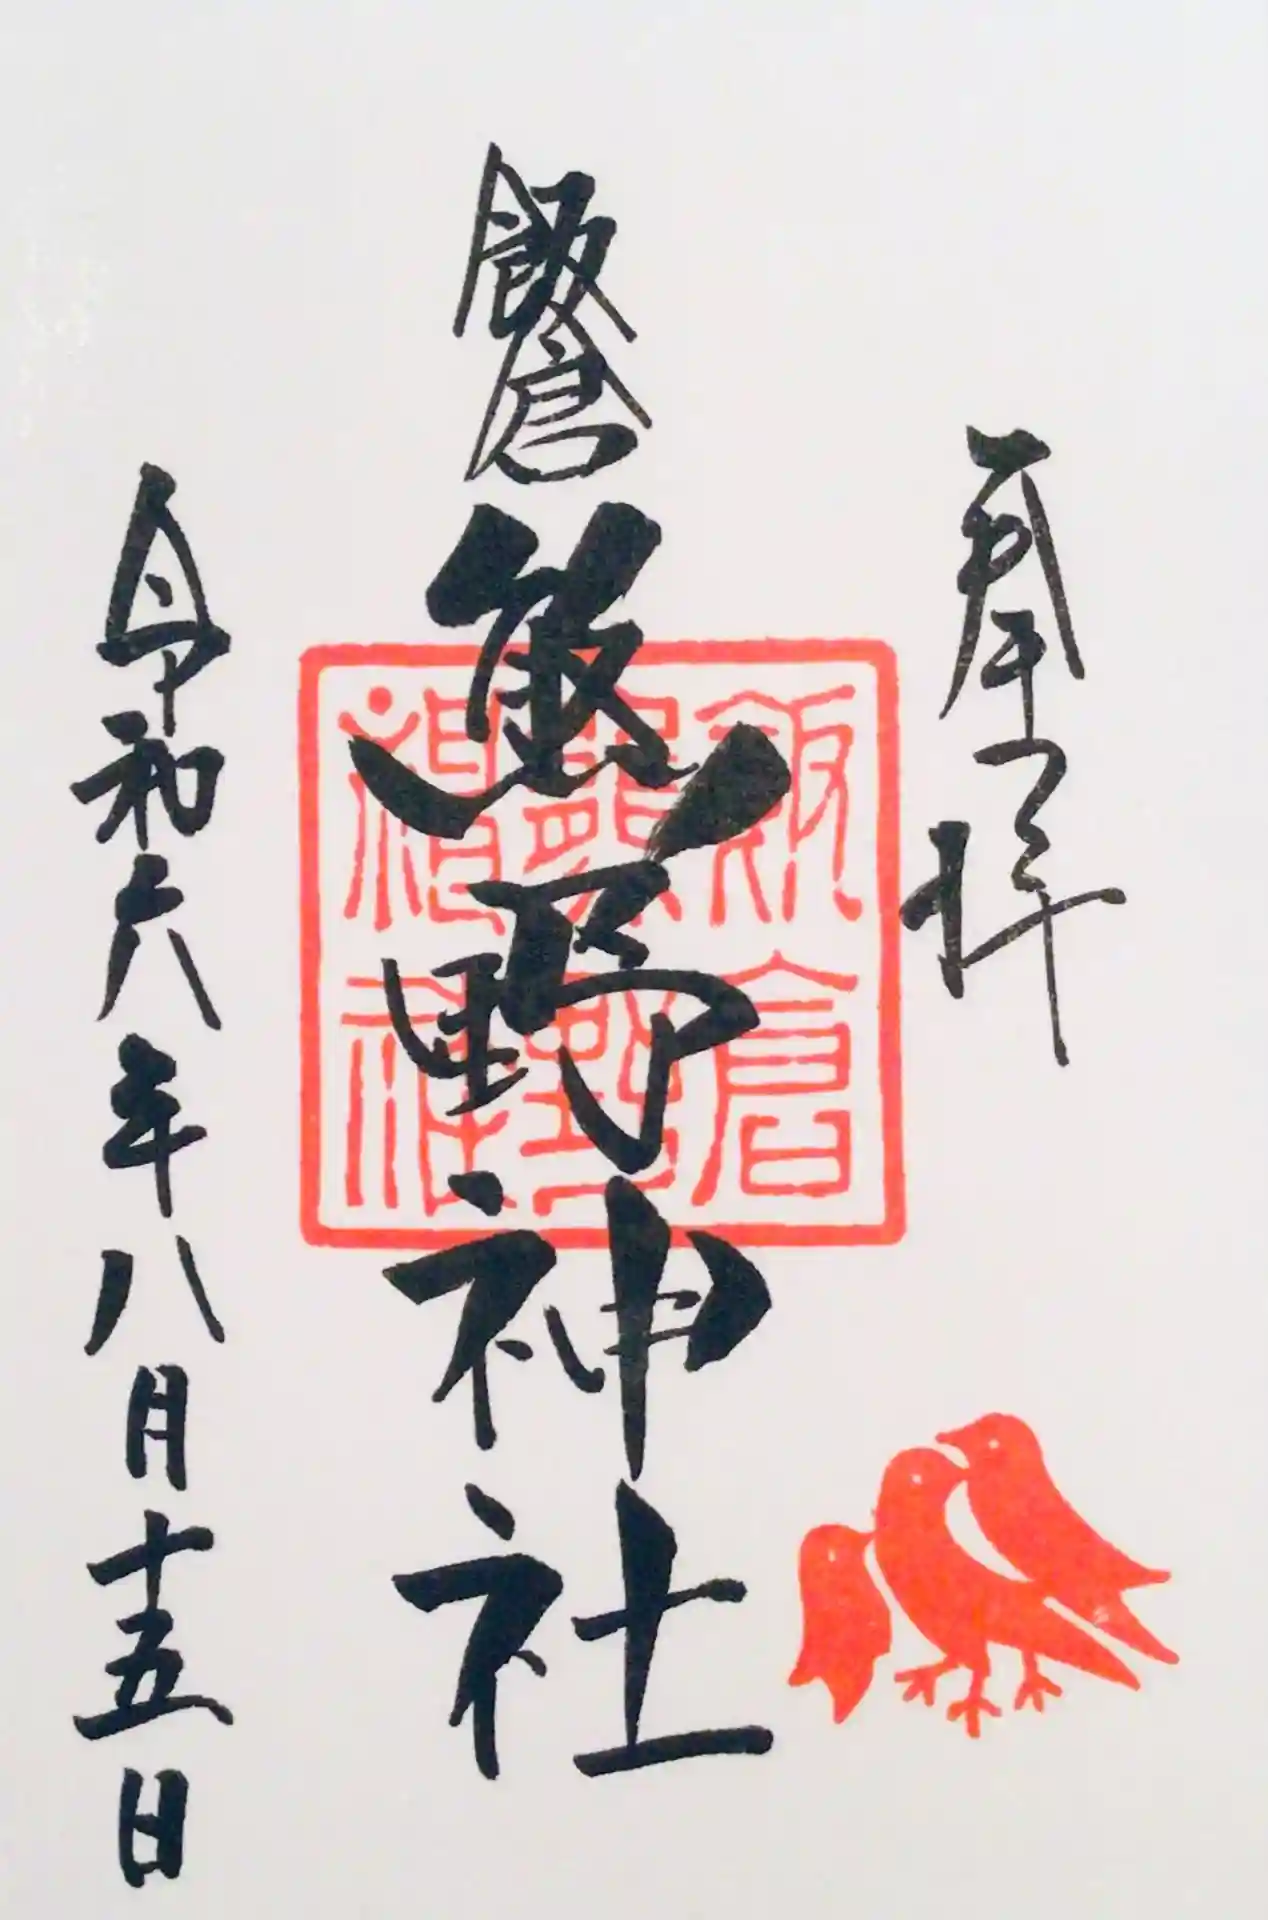 奉拝
飯倉
熊野神社
飯倉
熊野
神社
令和六年八月十五日